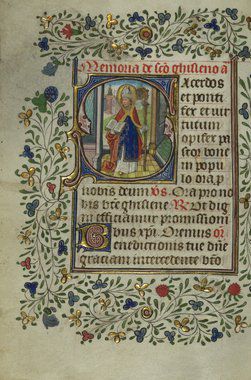 Memoria de sco ghisleno añ
Acerdos
et ponti
fex et vir
tutum
opifex pa
stor bone
in popu
lo ora p
nobis deum vs. Ora pro no
bis bte ghislene Rx Ut dig
ni efficiamur promissioni
bus xpi. Oremus or
enedictionis tue dñe
gratiam intercedente bto